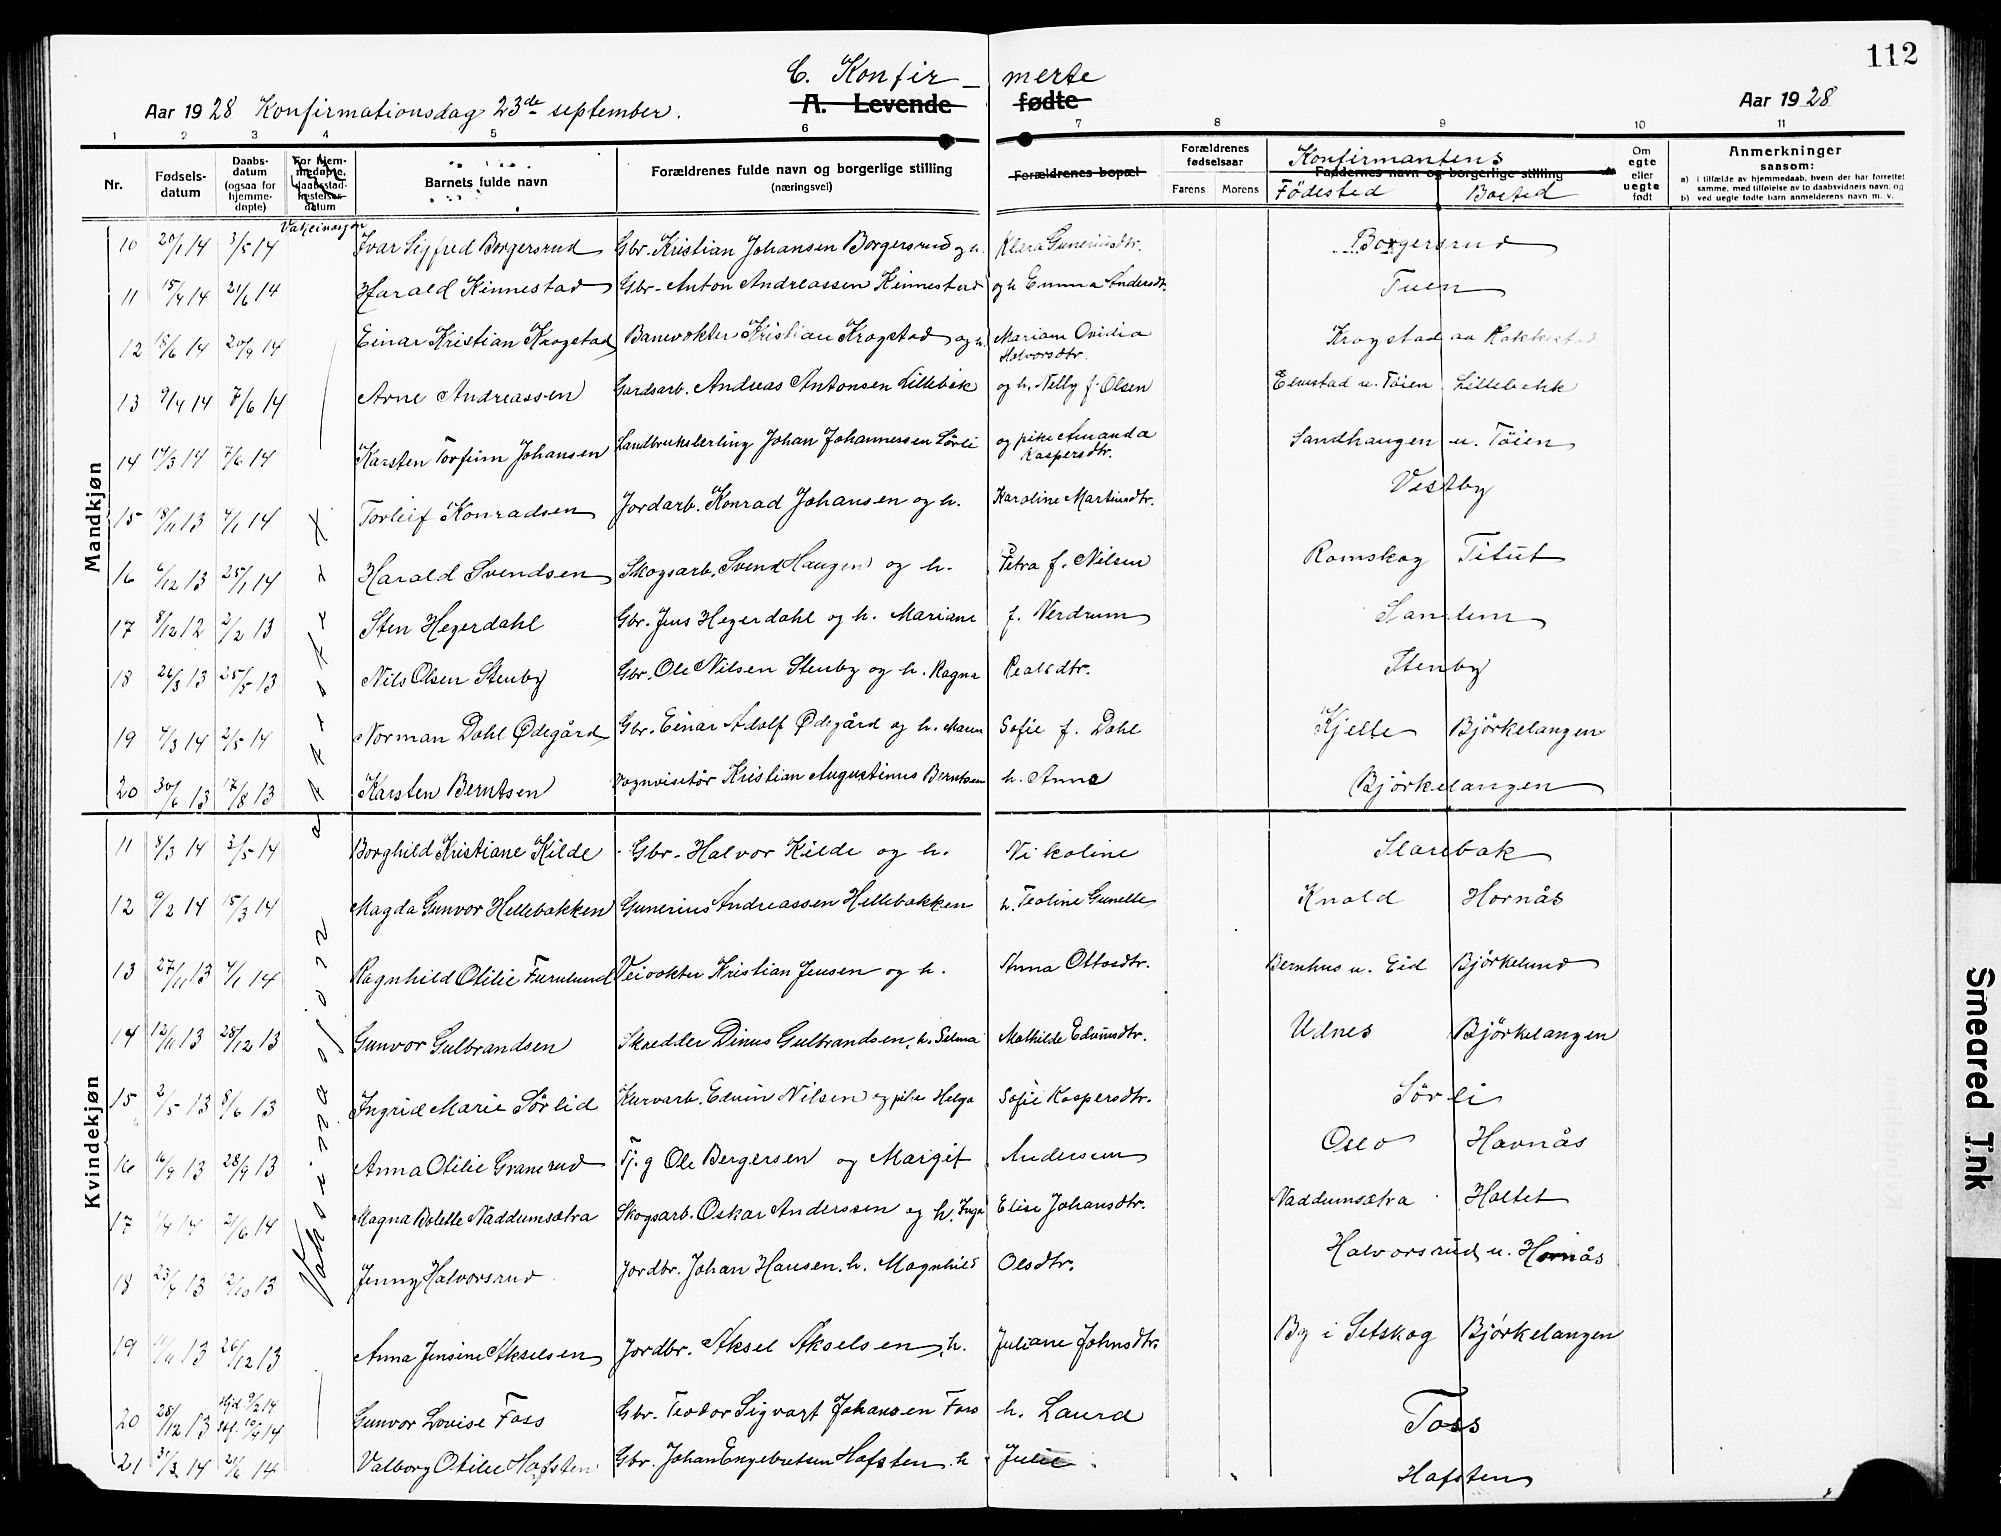 112
C. Konfir- merte
Aar 1928 Konfirmationsdag 23de september. A. Levende fødte Aar 1928
1 2 3 4 5 6 7 8 9 10 11
Nr. Fødsels-datum Daabs-datum (ogsaa for hjemme-døpte) For hjem-medøpte, daabsstad-festelses-datum Barnets fulde navn Forældrenes fulde navn og borgerlige stilling (næringsvei) Forældrenes bopæl Forældrenes fødselsaar Farens Morens Konfirmantens Faddernes navn og borgerlige stilling Födested Bosted Om egte eller uegte født Anmerkninger saasom: a) i tilfælde av hjemmedaab, hvem der har forrettet samme, med tilføielse av to daabsvidners navn, og b) ved uegte fødte barn anmelderens navn m. v.
Vakcinasjon
Mandkjøn
10 20/1 14 3/5 14 Ivar Sigfred Borgersrud Gbr. Kristian Johansen Borgersrud og h. Klara Guneriusdtr. Borgersrud
11 15/4 14 21/6 14 Harald Kinnestad Gbr. Anton Andreassen Kinnestad og h Emma Andersdtr. Tuen
12 18/6 14 20/9 14 Einar Kristian Krogstad Banevokter Kristian Krogstad og h. Mariam Ovidia Halvorsdtr. Krogstad av Rakkestad
13 9/4 14 7/6 14 Arne Andreassen Gardsarb. Andreas Antonsen Lillebæk og h. Nelly f. Olsen Elmstad u. Töien Lillebekk
14 14/3 14 7/6 14 Karsten Torfinn Johansen Landbrukslerling Johan Johannessen Sörli og pike Amanda Kaspersdtr. Sandhaugen u. Töien
15 18/11 13 4/1 14 Torleif Konradsen Jordarb. Konrad Johansen og h. Karoline Martinsdtr. Vestby
16 6/12 13 25/1 14 Harald Svendsen Skogsarb. Svend Haugen og h. Petra f. Nilsen Romskog Titut
17 8/12 12 2/2 13 Sten Hegerdahl Gbr. Jens Hegerdahl og h. Mariane f. Verdrum Sandem
18 26/3 13 25/5 13 Nils Olsen Stenby Gbr. Ole Nilsen Stenby og h. Ragna Realsdtr. Stenby
19 4/3 14 2/5 14 Norman Dahl Ødegård Gbr. Einar Adolf Ødegård og h. Maren Sofie f. Dahl Kjelle Björkelangen
20 30/6 13 17/8 13 Karsten Berntsen Vognvisitör Kristian Augustinus Berntsen h. Anna Björkelangen
Kvindekjøn
Vaksinasjon
11 8/3 14 3/5 14 Borghild Kristiane Kilde Gbr. Halvor Kilde og h. Nikoline Starebak
12 9/2 14 15/3 14 Magda Gunvor Hellebakken Gunerius Andreassen Hellebakken h. Teoline Gunelle Knold Hornås
13 27/11 13 4/1 14 Ragnhild Otilie Furulund Veivokter Kristian Jensen og h. Anna Ottosdtr. Bernhus u. Eid Björkelund
14 12/11 13 28/12 13 Gunvor Gulbrandsen Skredder Dinus Gulbrandsen, h. Selma Mathilde Edvinsdtr. Udnes Björkelangen
15 2/5 13 8/6 13 Ingrid Marie Sörlid Kurvarb. Edvin Nilsen og pike Helga Sofie Kaspersdtr. Sörli
16 16/9 13 28/9 13 Anna Otilie Granerud Tj. g Ole Bergersen og Margit Andersen Oslo Havnås
17 1/4 14 21/6 14 Magna Bolette Naddumsætra Skogsarb. Oskar Anderssen og h. Inga Elise Johansdtr. Naddumsætra Holtet
18 23/7 13 12/10 13 Jenny Halvorsrud Jordbr. Johan Hansen. h. Magnhild Olsdtr. Halvorsrud u. Hornås
19 11/11 13 26/12 13 Anna Jensine Akselsen Jordbr. Aksel Akselsen, h. Juliane Johnsdtr. By i Setskog Björkelangen
20 28/12 13 Hjd 9/2 14 Stf. 10/4 14 Gunvor Lovise Foss Gbr. Teodor Sigvart Johansen Foss h. Laura Foss
21 31/3 14 21/6 14 Valborg Otilie Hafsten Gbr. Johan Engebretsen Hafsten h Julie Hafsten
Smeared Ink